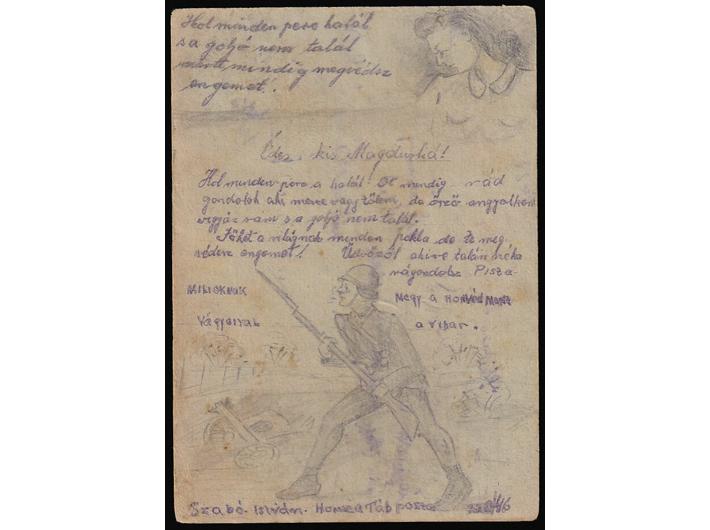 Hol minden perc halál
s a goljó nem talál
mindig megvédsz
engemet!
Édes kis Magduská!
Hol minden perc a halál Ot mindig rád
gondolok aki messe vagy tőlem, de őrző angyalként
vigyáz rám s a goljó nem talál.
Jöhet a világnak minden pokla de te meg
védesz engemet! Üdvözöl akire talán néha
rágondolsz Pista
MILIOKNAK
VágyaivaL
Megy a Honvéd Mert
a vihar.
Szabó István. Honvéd Tábposta